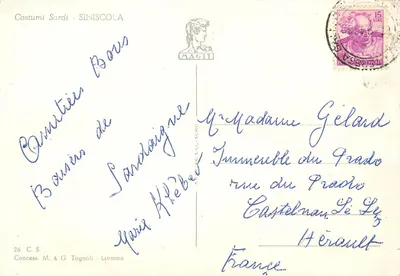 Costumi Sardi - SINISCOLA
MAGIT
15
Amitiés Bons
Baisers de
Sardaigne
Maria Kléber
Mr Madame Gélard
Immeuble du Prado
rue du Prado
Castelnau Le Lez
Hérault
France
26 C. S.
Concess. M. & G. Tognoli - Livorno